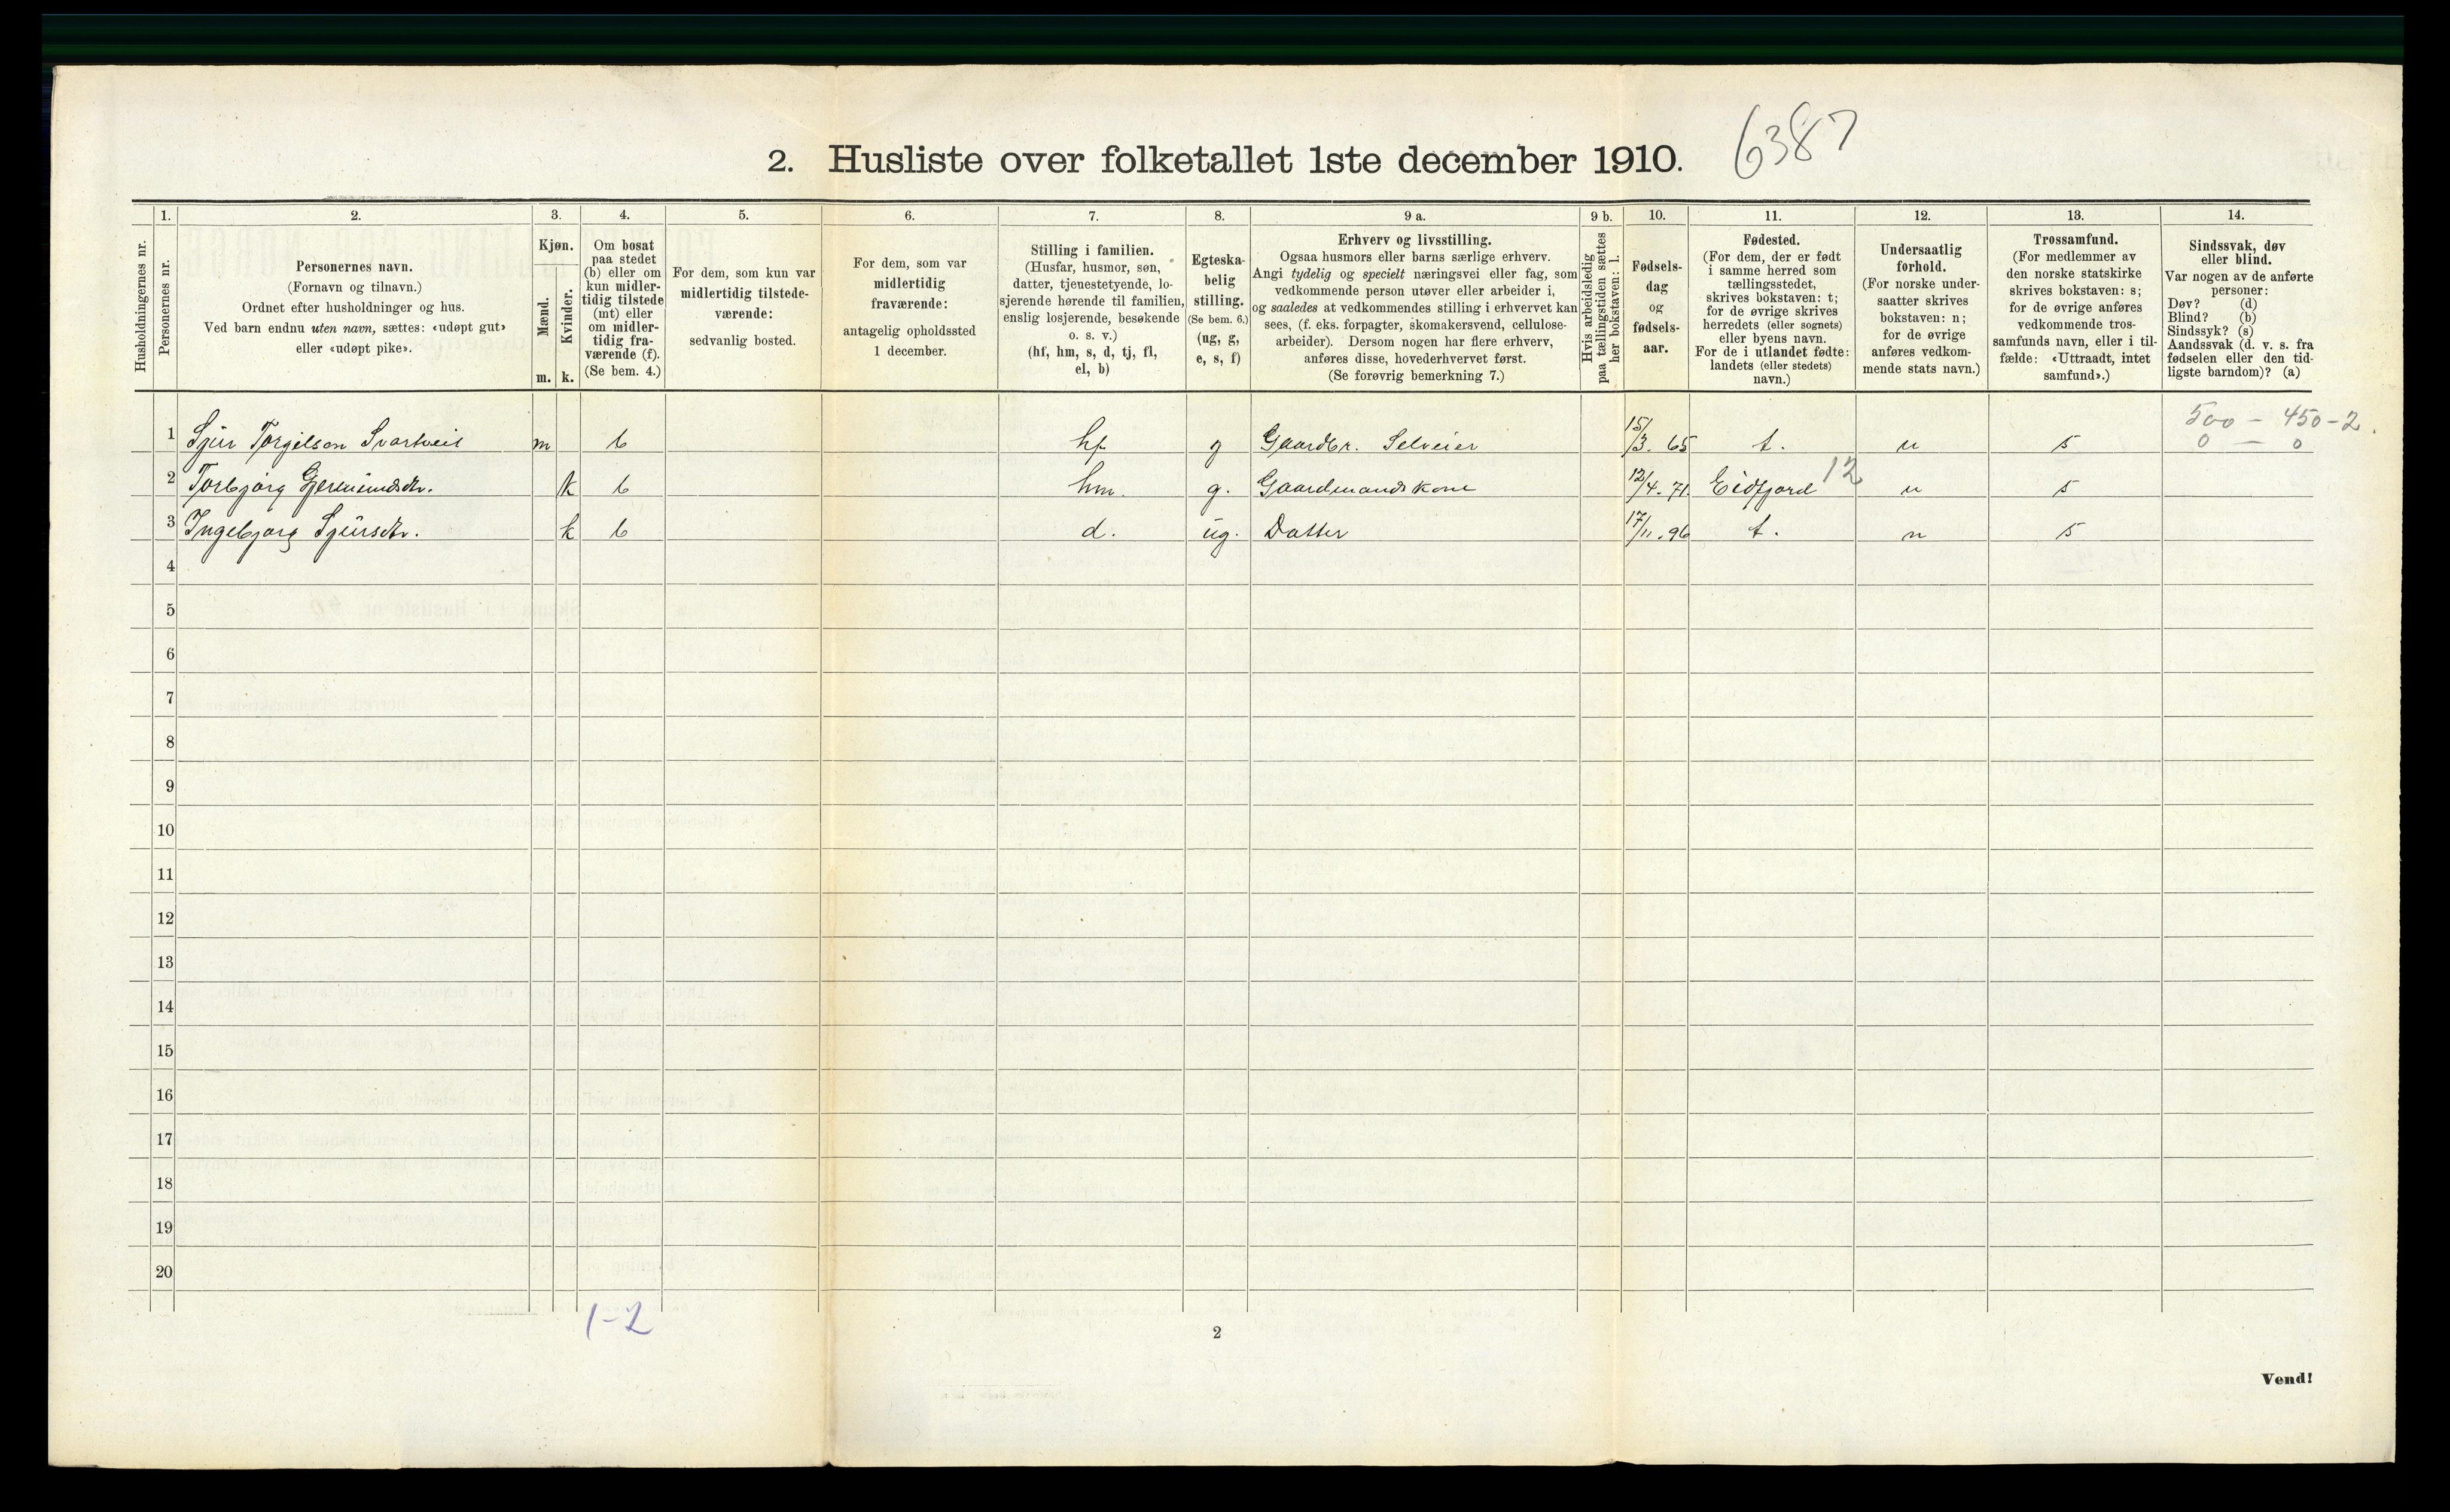 6387
2. Husliste over folketallet 1ste december 1910.
Husholdningernes nr.
1.
Personernes nr.
2.
Personernes navn.
(Fornavn og tilnavn.)
Ordnet efter husholdninger og hus.
Ved barn endnu uten navn, sættes: «udøpt gut»
eller «udøpt pike».
3.
Kjøn.
Mænd.
Kvinder.
m. k.
4.
Om bosat
paa stedet
(b) eller om
kun midler-
tidig tilstede
(mt) eller
om midler-
tidig fra-
værende (f).
(Se bem. 4.)
5.
For dem, som kun var
midlertidig tilstede-
værende:
sedvanlig bosted.
6.
For dem, som var
midlertidig
fraværende:
antagelig opholdssted
1 december.
7.
Stilling i familien.
(Husfar, husmor, søn,
datter, tjenestetyende, lo-
sjerende hørende til familien,
enslig losjerende, besøkende
o. s. v.)
(hf, hm, s, d, tj, fl,
el, b)
8.
Egteska-
belig
stilling.
(Se bem. 6.)
(ug, g,
e, s, f)
9 a.
Erhverv og livsstilling.
Ogsaa husmors eller barns særlige erhverv.
Angi tydelig og specielt næringsvei eller fag, som
vedkommende person utøver eller arbeider i,
og saaledes at vedkommendes stilling i erhvervet kan
sees, (f. eks. forpagter, skomakersvend, cellulose-
arbeider). Dersom nogen har flere erhverv,
anføres disse, hovederhvervet først.
(Se forøvrig bemerkning 7.)
9 b.
Hvis arbeidsledig
paa tællingstiden sættes
her bokstaven: l.
10.
Fødsels-
dag
og
fødsels-
aar.
11.
Fødested.
(For dem, der er født
i samme herred som
tællingsstedet,
skrives bokstaven: t;
for de øvrige skrives
herredets (eller sognets)
eller byens navn.
For de i utlandet fødte:
landets (eller stedets)
navn.)
12.
Undersaatlig
forhold.
(For norske under-
saatter skrives
bokstaven: n;
for de øvrige
anføres vedkom-
mende stats navn.)
13.
Trossamfund.
(For medlemmer av
den norske statskirke
skrives bokstaven: s;
for de øvrige anføres
vedkommende tros-
samfunds navn, eller i til-
fælde: «Uttraadt, intet
samfund».)
14.
Sindssvak, døv
eller blind.
Var nogen av de anførte
personer:
Døv? (d)
Blind? (b)
Sindssyk? (s)
Aandssvak (d. v. s. fra
fødselen eller den tid-
ligste barndom)? (a)
500 - 450-2.
0 - 0
1 Sjur Torgilson Svartveit m b hf g Gaardbr. Selveier 15/3. 65 t. n s
2 Torbjørg Gjermundsdtr. k b hm. g. Gaardmandskone 12/4. 71. Eidfjord 12 n s
3 Ingebjørg Sjursdtr. k b d. ug. Datter 17/11. 96 t. n s
4
5
6
7
8
9
10
11
12
13
14
15
16
17
18
19
20
1-2
2
Vend!